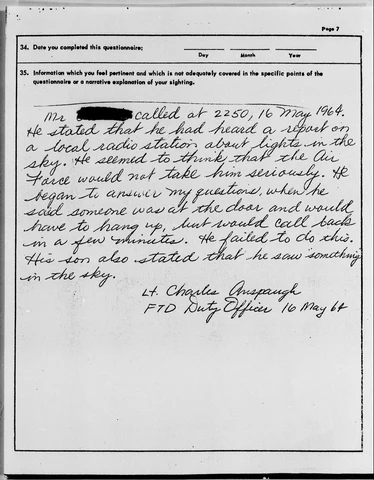 Page 7
34. Date you completed this questionnaire;
Day Month Year
35. Information which you feel pertinent and which is not adequately covered in the specific points of the
questionnaire or a narrative explanation of your sighting.
Mr called at 2250, 16 May 1964.
He stated that he had heard a report on
a local radio station about lights in the
sky. He seemed to think that the Air
Force would not take him seriously. He
began to answer my questions, when he
said someone was at the door and would
have to hang up, but would call back
in a few minutes. He failed to do this.
His son also stated that he saw something
in the sky.
Lt. Charles Anspaugh
FTD Duty Officer 16 May 64